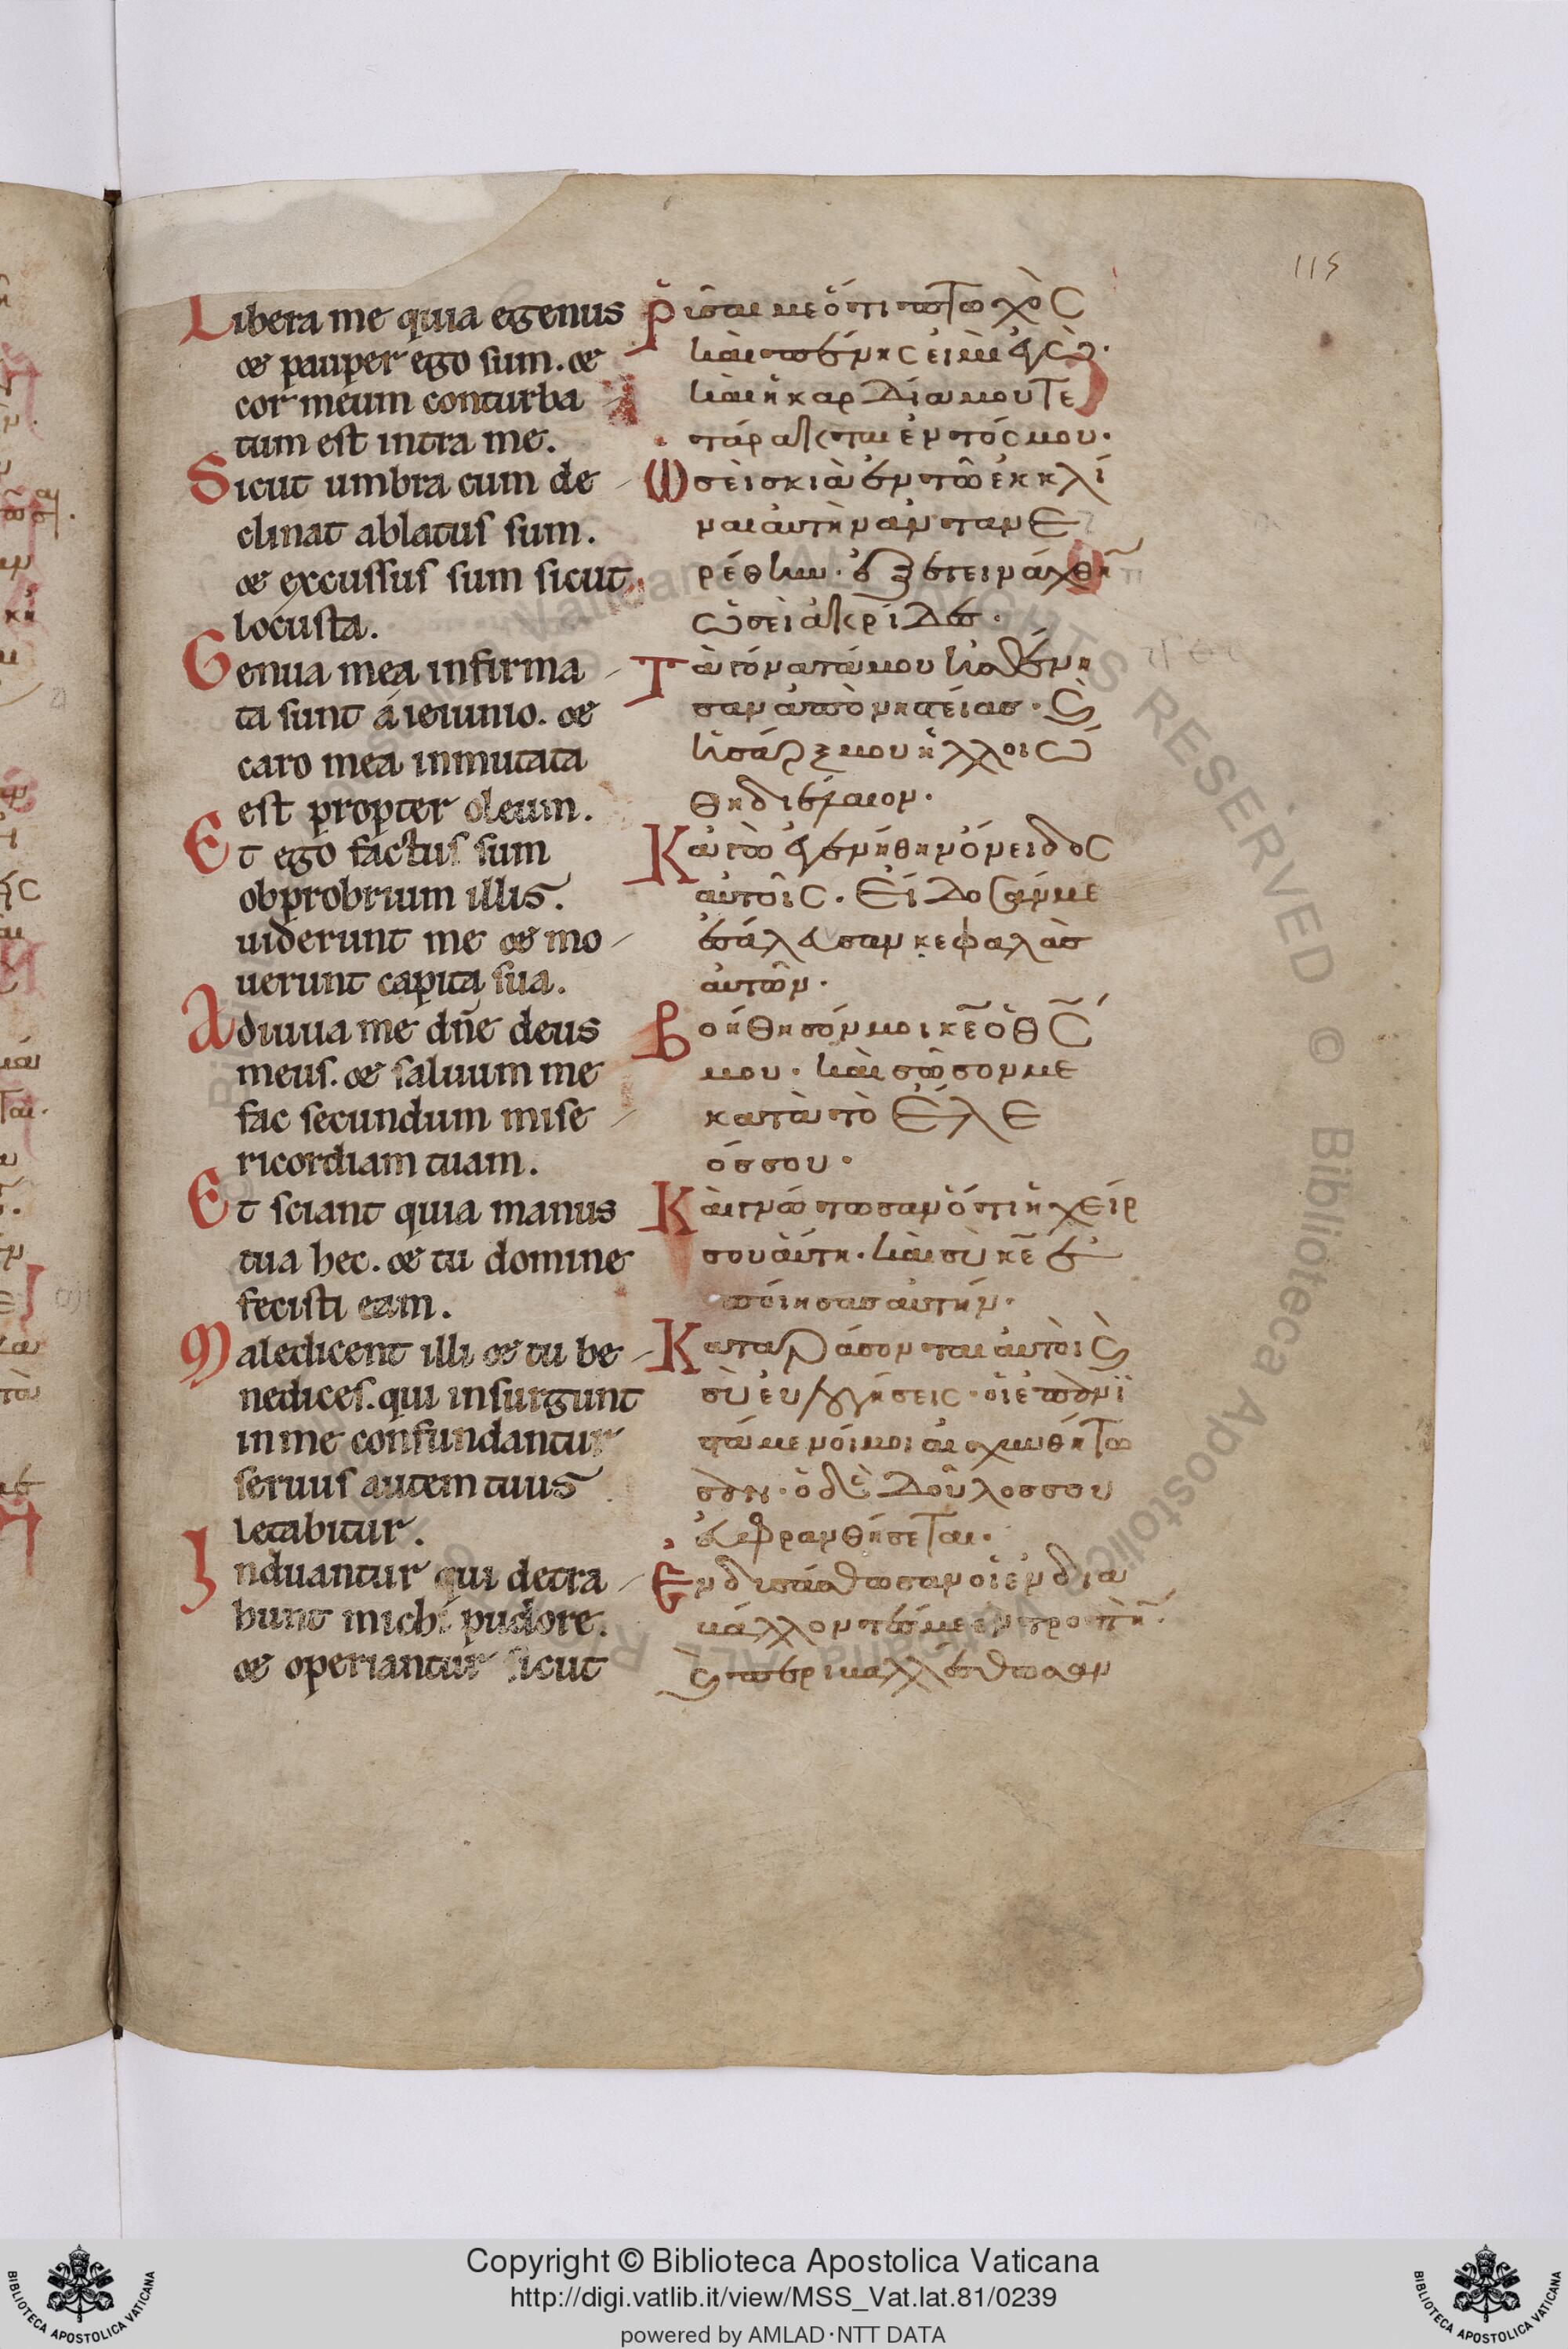 115
Libera me quia egenus
& pauper ego sum. &
cor meum conturba
tum est intra me.
Sicut umbra cum de
clinat ablatus sum.
& excussus sum sicut
locusta.
Genua mea infirma
ta sunt á ieiunio. &
caro mea inmutata
est propter oleum.
Et ego factus sum
obprobrium illis.
uiderunt me & mo
uerunt capita sua.
Adiuua me dñe deus
meus. & saluum me
fac secundum mise
ricordiam tuam.
Et sciant quia manus
tua hec. & tu domine
fecisti eam.
Maledicent illi & tu be
nedices. qui insurgunt
in me confundantur
seruus autem tuus
letabitur.
Induantur qui detra
hunt michi pudore.
& operiantur sicut
ῥῦσαι με ὅτι πτωχὸς
καὶ πένης εἰμὶ ἐγὼ.
καὶ ἡ καρδία μου τε
τάρακται ἐντός μου.
Ὡσεὶ σκιὰ ἐν τῶ ἐκκλί
ναι αὐτὴν ἀντανε
ρέθην. ἐξετεινάχθην
ὡσεὶ ἀκρίδες.
Τὰ γόνατά μου ἠσθένη
σαν ἀπὸ νηστείας. καὶ
ἡ σάρξ μου ἠλλοιώ
θη δι ἔλαιον.
Κἀγὼ ἐγενήθην ὄνειδος
αὐτοῖς. Εἴδοσάν με
ἐσάλευσαν κεφαλὰς
αὐτῶν.
Βοήθησόν μοι κε ὁ θς
μου. καὶ σῶσόν με
κατὰ τὸ ἔλε
ός σου.
Καὶ γνώτωσαν ὅτι ἡ χείρ
σου αὕτη. καὶ σὺ κε ἐ
ποίησας αὐτήν.
Καταράσονται αὐτοὶ καὶ
σὺ εὐλογήσεις. οἱ ἐπανι
στάμενοί μοι αἰσχυνθήτω
σαν. ὁ δὲ δοῦλός σου
εὐφρανθήσεται.
Ἐνδυσάσθωσαν οἱ ἐνδια
βάλλοντές με ἐντροπὴν.
καὶ περιβαλλέσθωσαν
Copyright © Biblioteca Apostolica Vaticana
http://digi.vatlib.it/view/MSS_Vat.lat.81/0239
powered by AMLAD·NTT DATA
BIBLIOTECA APOSTOLICA VATICANA
BIBLIOTECA APOSTOLICA VATICANA